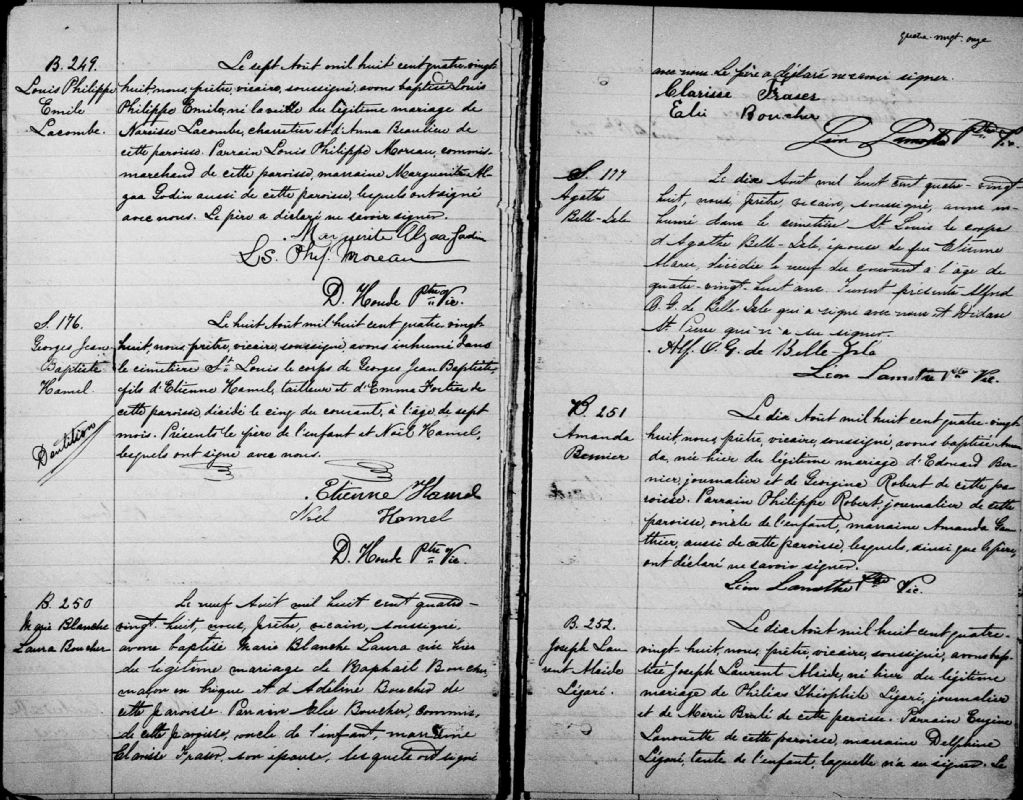 B. 249.
Louis Philippe
Emile
Lacombe.
Le sept Août mil huit cent quatre-vingt
huit, nous, prêtre, vicaire, soussigné, avons baptisé Louis
Philippe Emile, né la veille du légitime mariage de
Narcisse Lacombe, charretier et d'Anna Beaulieu de
cette paroisse. Parrain Louis Philippe Moreau, commis
marchand de cette paroisse, marraine Marguerite Al-
zaa Godin aussi de cette paroisse, lesquels ont signé
avec nous. Le père a déclaré ne savoir signer.
Marguerite Alzaa Godin
Ls. Phil. Moreau
D. Houde Ptre Vic.
S. 176.
Georges Jean
Baptiste
Hamel
Dentition
Le huit Août mil huit cent quatre-vingt
huit, nous prêtre, vicaire, soussigné, avons inhumé dans
le cimetière St Louis le corps de Georges Jean Baptiste,
fils d'Etienne Hamel, tailleur et d'Emma Fortier de
cette paroisse, décédé le cinq du courant, à l'âge de sept
mois. Présents le père de l'enfant et Noël Hamel,
lesquels ont signé avec nous.
Etienne Hamel
Noël Hamel
D. Houde Ptre Vic.
B. 250
Marie Blanche
Laura Boucher
Le neuf Août mil huit cent quatre-
vingt huit, nous, prêtre, vicaire, soussigné,
avons baptisé Marie Blanche Laura née hier
du légitime mariage de Raphaël Boucher
maçon en brique et d'Adeline Boucher de
cette paroisse Parrain Elie Boucher, commis,
de cette paroisse, oncle de l'enfant, marraine
Clarisse Fraser, son épouse, lesquels ont signé
quatre-vingt-onze
avec nous. Le père a déclaré ne savoir signer.
Clarisse Fraser
Elie Boucher
Léon Lamothe Ptre Vic.
S. 177
Agathe
Belle-Isle
Le dix Août mil huit cent quatre-vingt
huit, nous, prêtre, vicaire, soussigné, avons in-
humé dans le cimetière St Louis le corps
d'Agathe Belle-Isle, épouse de feu Etienne
décédée le neuf du courant à l'âge de
quatre-vingt huit ans. Furent présents Alfred
O. G. de Belle-Isle qui a signé avec nous et
St Pierre qui n'a su signer.
Alf. O. G. de Belle Isle
Léon Lamothe Ptre Vic.
B. 251
Amanda
Bernier
Le dix Août mil huit cent quatre-vingt
huit, nous, prêtre, vicaire, soussigné, avons baptisé Aman-
da, née hier du légitime mariage d'Edouard Ber-
nier, journalier et de Georgina Robert de cette pa-
roisse. Parrain Philippe Robert, journalier de cette
paroisse, oncle de l'enfant, marraine Amanda Gau-
thier, aussi de cette paroisse, lesquels, ainsi que le père,
ont déclaré ne savoir signer.
Léon Lamothe Ptre Vic.
B. 252.
Joseph Lau-
rent Alcide
Légaré.
Le dix Août mil huit cent quatre-
vingt-huit, nous, prêtre, vicaire, soussigné, avons bap-
tisé Joseph Laurent Alcide, né hier du légitime
mariage de Philéas Théophile Légaré, journalier
et de Marie Brulé de cette paroisse. Parrain Eugène
Lanouette de cette paroisse, marraine Delphine
Légaré, tante de l'enfant, laquelle n'a su signer. Le